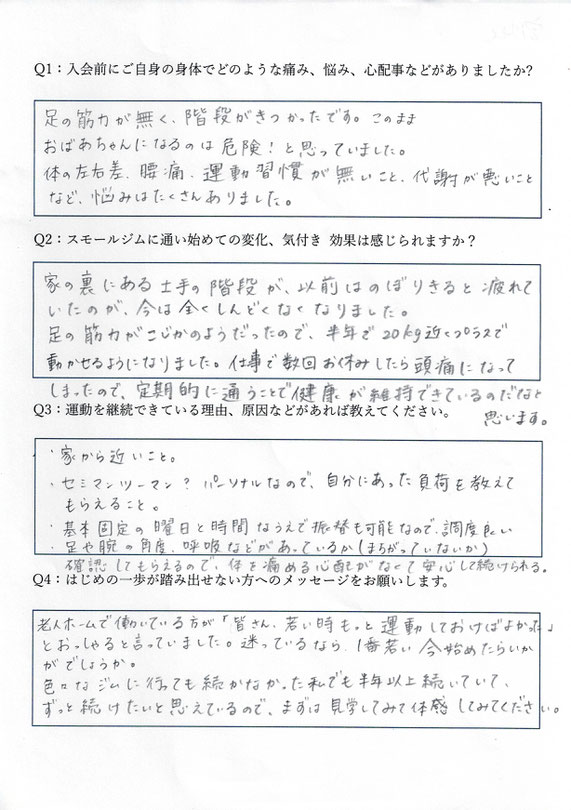 Q1：入会前にご自身の身体でどのような痛み、悩み、心配事などがありましたか?
足の筋力が無く、階段がきつかったです。このまま
おばあちゃんになるのは危険！と思っていました。
体の左右差、腰痛、運動習慣が無いこと、代謝が悪いこと
など、悩みはたくさんありました。
Q2：スモールジムに通い始めての変化、気付き 効果は感じられますか？
家の裏にある土手の階段が、以前はのぼりきると疲れて
いたのが、今は全くしんどくなくなりました。
足の筋力がこじかのようだったので、半年で20kg近くプラスで
動かせるようになりました。仕事で数回お休みしたら頭痛になって
しまったので、定期的に通うことで健康が維持できているのだなと
思います。
Q3：運動を継続できている理由、原因などがあれば教えてください。
・家から近いこと。
・セミマンツーマン？パーソナルなので、自分にあった負荷を教えて
もらえること。
・基本固定の曜日と時間なうえで振替も可能なので、調度良い
・足や腕の角度、呼吸などがあっているか(まちがっていないか)
確認してもらえるので、体を痛める心配がなくて安心して続けられる。
Q4：はじめの一歩が踏み出せない方へのメッセージをお願いします。
老人ホームで働いている方が「皆さん、若い時もっと運動しておけばよかった」
とおっしゃると言っていました。迷っているなら、1番若い今始めたらいか
がでしょうか。
色々なジムに行っても続かなかった私でも半年以上続いていて、
ずっと続けたいと思えているので、まずは見学してみて体感してみてください。